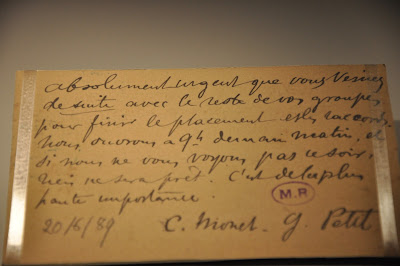 absolument urgent que vous veniez
de suite avec le reste de vos groupes
pour finir le placement et les raccords
Nous ouvrons a 9h demain matin, et
si nous ne vous voyons pas ce soir,
rien ne sera prêt. C'est de la plus
haute importance.
M.R
20/6/89 C. Monet. G. Petit